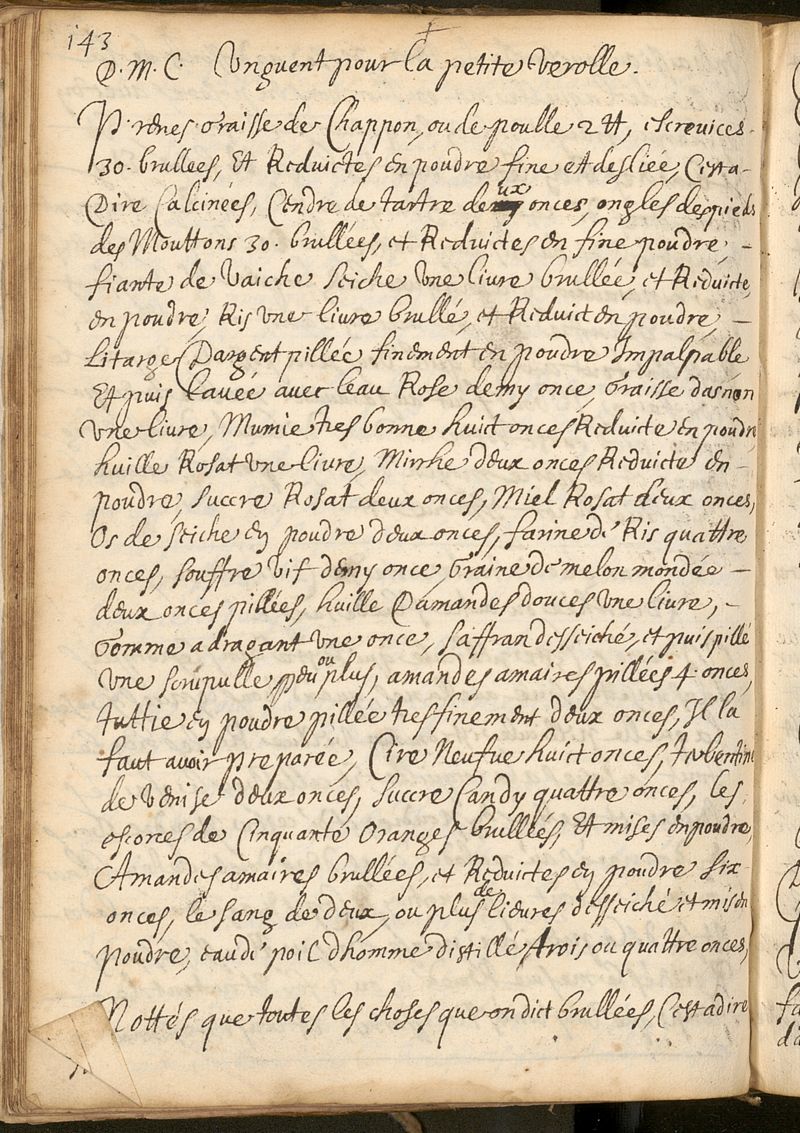 143
D. M. C. Unguent pour la petite verolle.
Prenes Graisse de Chappon, ou de poulle 2 ℔, escrevices
30. brullees, Et Reduictes en poudre fine et desliée, Cesta-
Dire Calcinées, Cendre de tartre deux onces, ongles des pieds
des Mouttons 30. brullées, et Reduictes en fine poudre, -
fiante de Vaiche seiche Une livre brullée, et Reduicte
en poudre, Ris une livre brullé, et Reduict en poudre, -
Litarge Dargent pillée finement en poudre Impalpable
Et puis lavée avec leau Rose demy once, Graisse dasnon
une livre, Mumie tres bonne huict onces Reduicte en poudre
huille Rosat une livre, Mirrhe deux onces Reduicte en -
poudre, succre Rosat deux onces, Miel Rosat deux onces,
Os de seiche en poudre deux onces, farine de Ris quattre
onces, souffre vif demy once, Graine de melon mondée -
deux onces pillées, huille Damandes douces Une livre, -
Gomme adragant Une once, saffran desseiché, et puis pillé
Une scrupulle peu ou plus, amandes amaires pillées 4 onces,
tuttie en poudre pillée tres finement deux onces, Il la
faut avoir preparée, Cire Neufve huict onces, terbentine
de venise deux onces, succre Candy quattre onces, les
escorces de Cinquante Oranges brullées, Et mises en poudre,
Amandes amaires brullées, et Reduictes en poudre six
onces, le sang de deux, ou plus de lievres desseiché et mis en
poudre, eau de poil dhomme distillé trois ou quattre onces,
Nottés que toutes les choses que on dict brullées, Cest adire